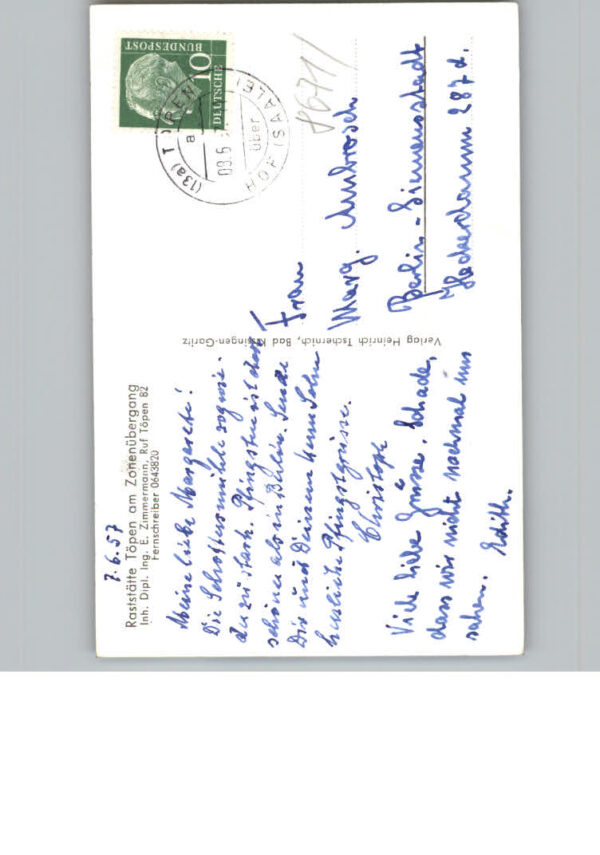 Raststätte Töpen am Zonenübergang
Inh. Dipl. Ing. E. Zimmermann, Ruf Töpen 82
Fernschreiber 0643820
7.6.57
Meine liebe Margarete!
Die
zu stark. Pfingsten ist doch
schöner als in Berlin. Sende
Dir und Deinem Herrn Sohn
herzliche Pfingstgrüsse.
Christoph
Viele liebe Grüsse. Schade,
dass wir uns nicht nochmal
sahen. Edith.
Verlag Heinrich Tschernich, Bad Kissingen-Garitz
DEUTSCHE
BUNDESPOST
10
(13a) TÖPEN
über
HOF (SAALE)
a
Frau
Marg. Ambrosch
Berlin-Siemensstadt
Heckerdamm 287 d.